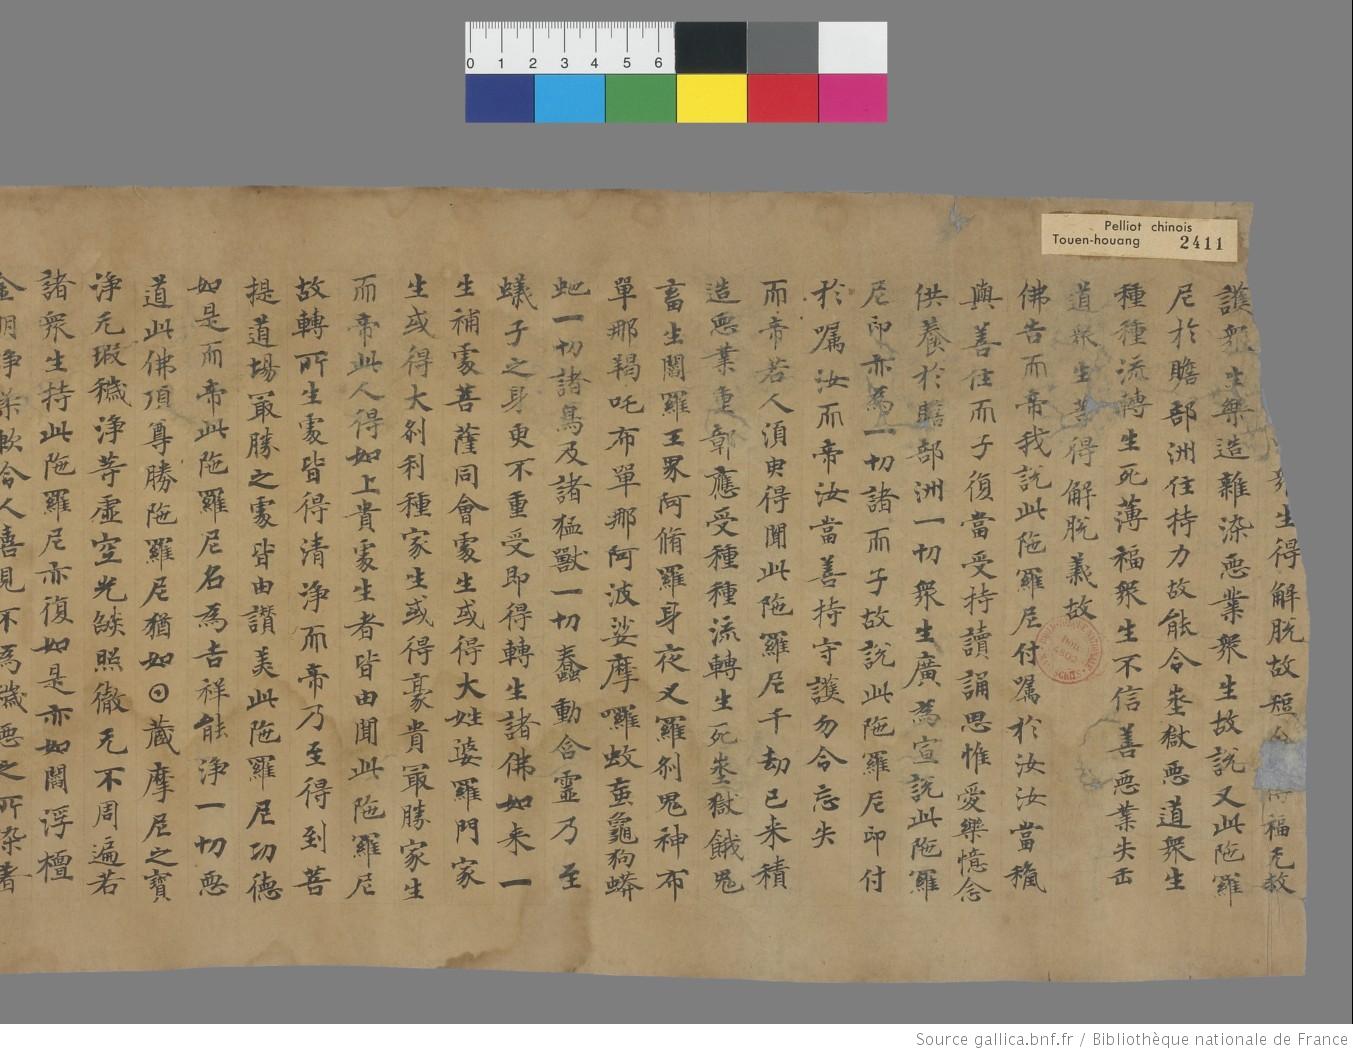 0 1 2 3 4 5 6
Pelliot chinois
Touen-houang 2411
生得解脱故短 福无救
護衆生樂造雜染惡業衆生故説又此陁羅
尼於贍部洲住持力故能令埊獄惡道衆生
種種流轉生死薄福衆生不信善惡業失㐄
道衆生等得解脱義故
佛告而帝我説此陁羅尼付嘱於汝汝當穐
與善住而子復當受持讀誦思惟愛樂憶念
供養於贍部洲一切衆生廣為宣説此陁羅
尼印亦為一切諸而子故説此陁羅尼印付
於嘱汝而帝汝當善持守護勿令忘失
而帝若人湏臾得聞此陁羅尼千劫已来積
造惡業重鄣應受種種流轉生死埊獄餓鬼
畜生閻羅王界阿脩羅身夜叉羅刹鬼神布
單那羯吒布單那阿波娑摩囉蚊䖟龜狗蟒
虵一切諸鳥及諸猛獸一切蠢動含靈乃至
蟻子之身更不重受即得轉生諸佛如来一
生補處菩薩同會處生或得大姓婆羅門家
生或得大刹利種家生或得豪貴冣勝家生
而帝此人得如上貴處生者皆由聞此陁羅尼
故轉所生處皆得清淨而帝乃至得到菩
提道場冣勝之處皆由讃美此陁羅尼功德
如是而帝此陁羅尼名為吉祥能淨一切惡
道此佛頂尊勝陁羅尼猶如〇藏摩尼之寶
淨无瑕穢淨等虛空光燄照徹无不周遍若
諸衆生持此陁羅尼亦復如是亦如閻浮檀
金明淨柔軟令人喜見不為穢惡之所染著
Source gallica.bnf.fr / Bibliothèque nationale de France